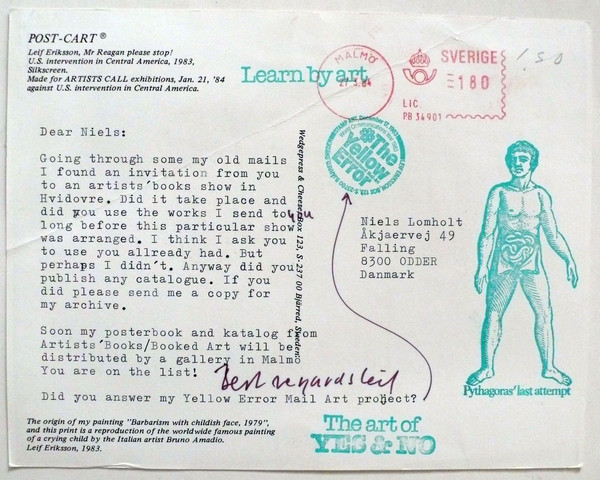 POST-CART ®
Leif Eriksson, Mr Reagan please stop!
U.S. intervention in Central America, 1983,
Silkscreen.
Made for ARTISTS CALL exhibitions, Jan. 21, '84
against U.S. intervention in Central America.
Learn by art
MALMÖ
SVERIGE
180
LIC.
PB 34901
1,50
The
Yellow
Error
Dear Niels:
Going through some my old mails
I found an invitation from you
to an artists´books show in
Hvidovre. Did it take place and
did you use the works I send to you
long before this particular show
was arranged. I think I ask you
to use you allready had. But
perhaps I didn´t. Anyway did you
publish any catalogue. If you
did please send me a copy for
my archive.
Soon my posterbook and katalog from
Artists´Books/Booked Art will be
distributed by a gallery in Malmö
You are on the list!
Best regards leif
Did you answer my Yellow Error Mail Art project?
Wedgepress & Cheese Box 123, S-237 00 Bjärred, Sweden
Niels Lomholt
Åkjaervej 49
Falling
8300 ODDER
Danmark
Pythagoras' last attempt
The art of
YES & NO
The origin of my painting "Barbarism with childish face, 1979",
and this print is a reproduction of the worldwide famous painting
of a crying child by the Italian artist Bruno Amadio.
Leif Eriksson, 1983.